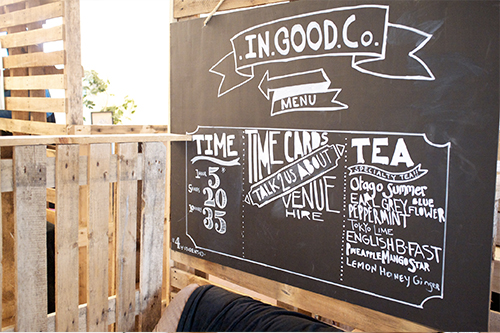 .IN.GOOD.Co.
MENU
TIME
5
20
35
TIME CARDS
TALK 2 US ABOUT
VENUE
HIRE
TEA
SPECIALTY TEA!!
Otago Summer
EARL GREY BLUE FLOWER
PEPPERMINT
TOKYO LIME
ENGLISH B-FAST
PINEAPPLE MANGO STAR
LEMON HONEY GINGER